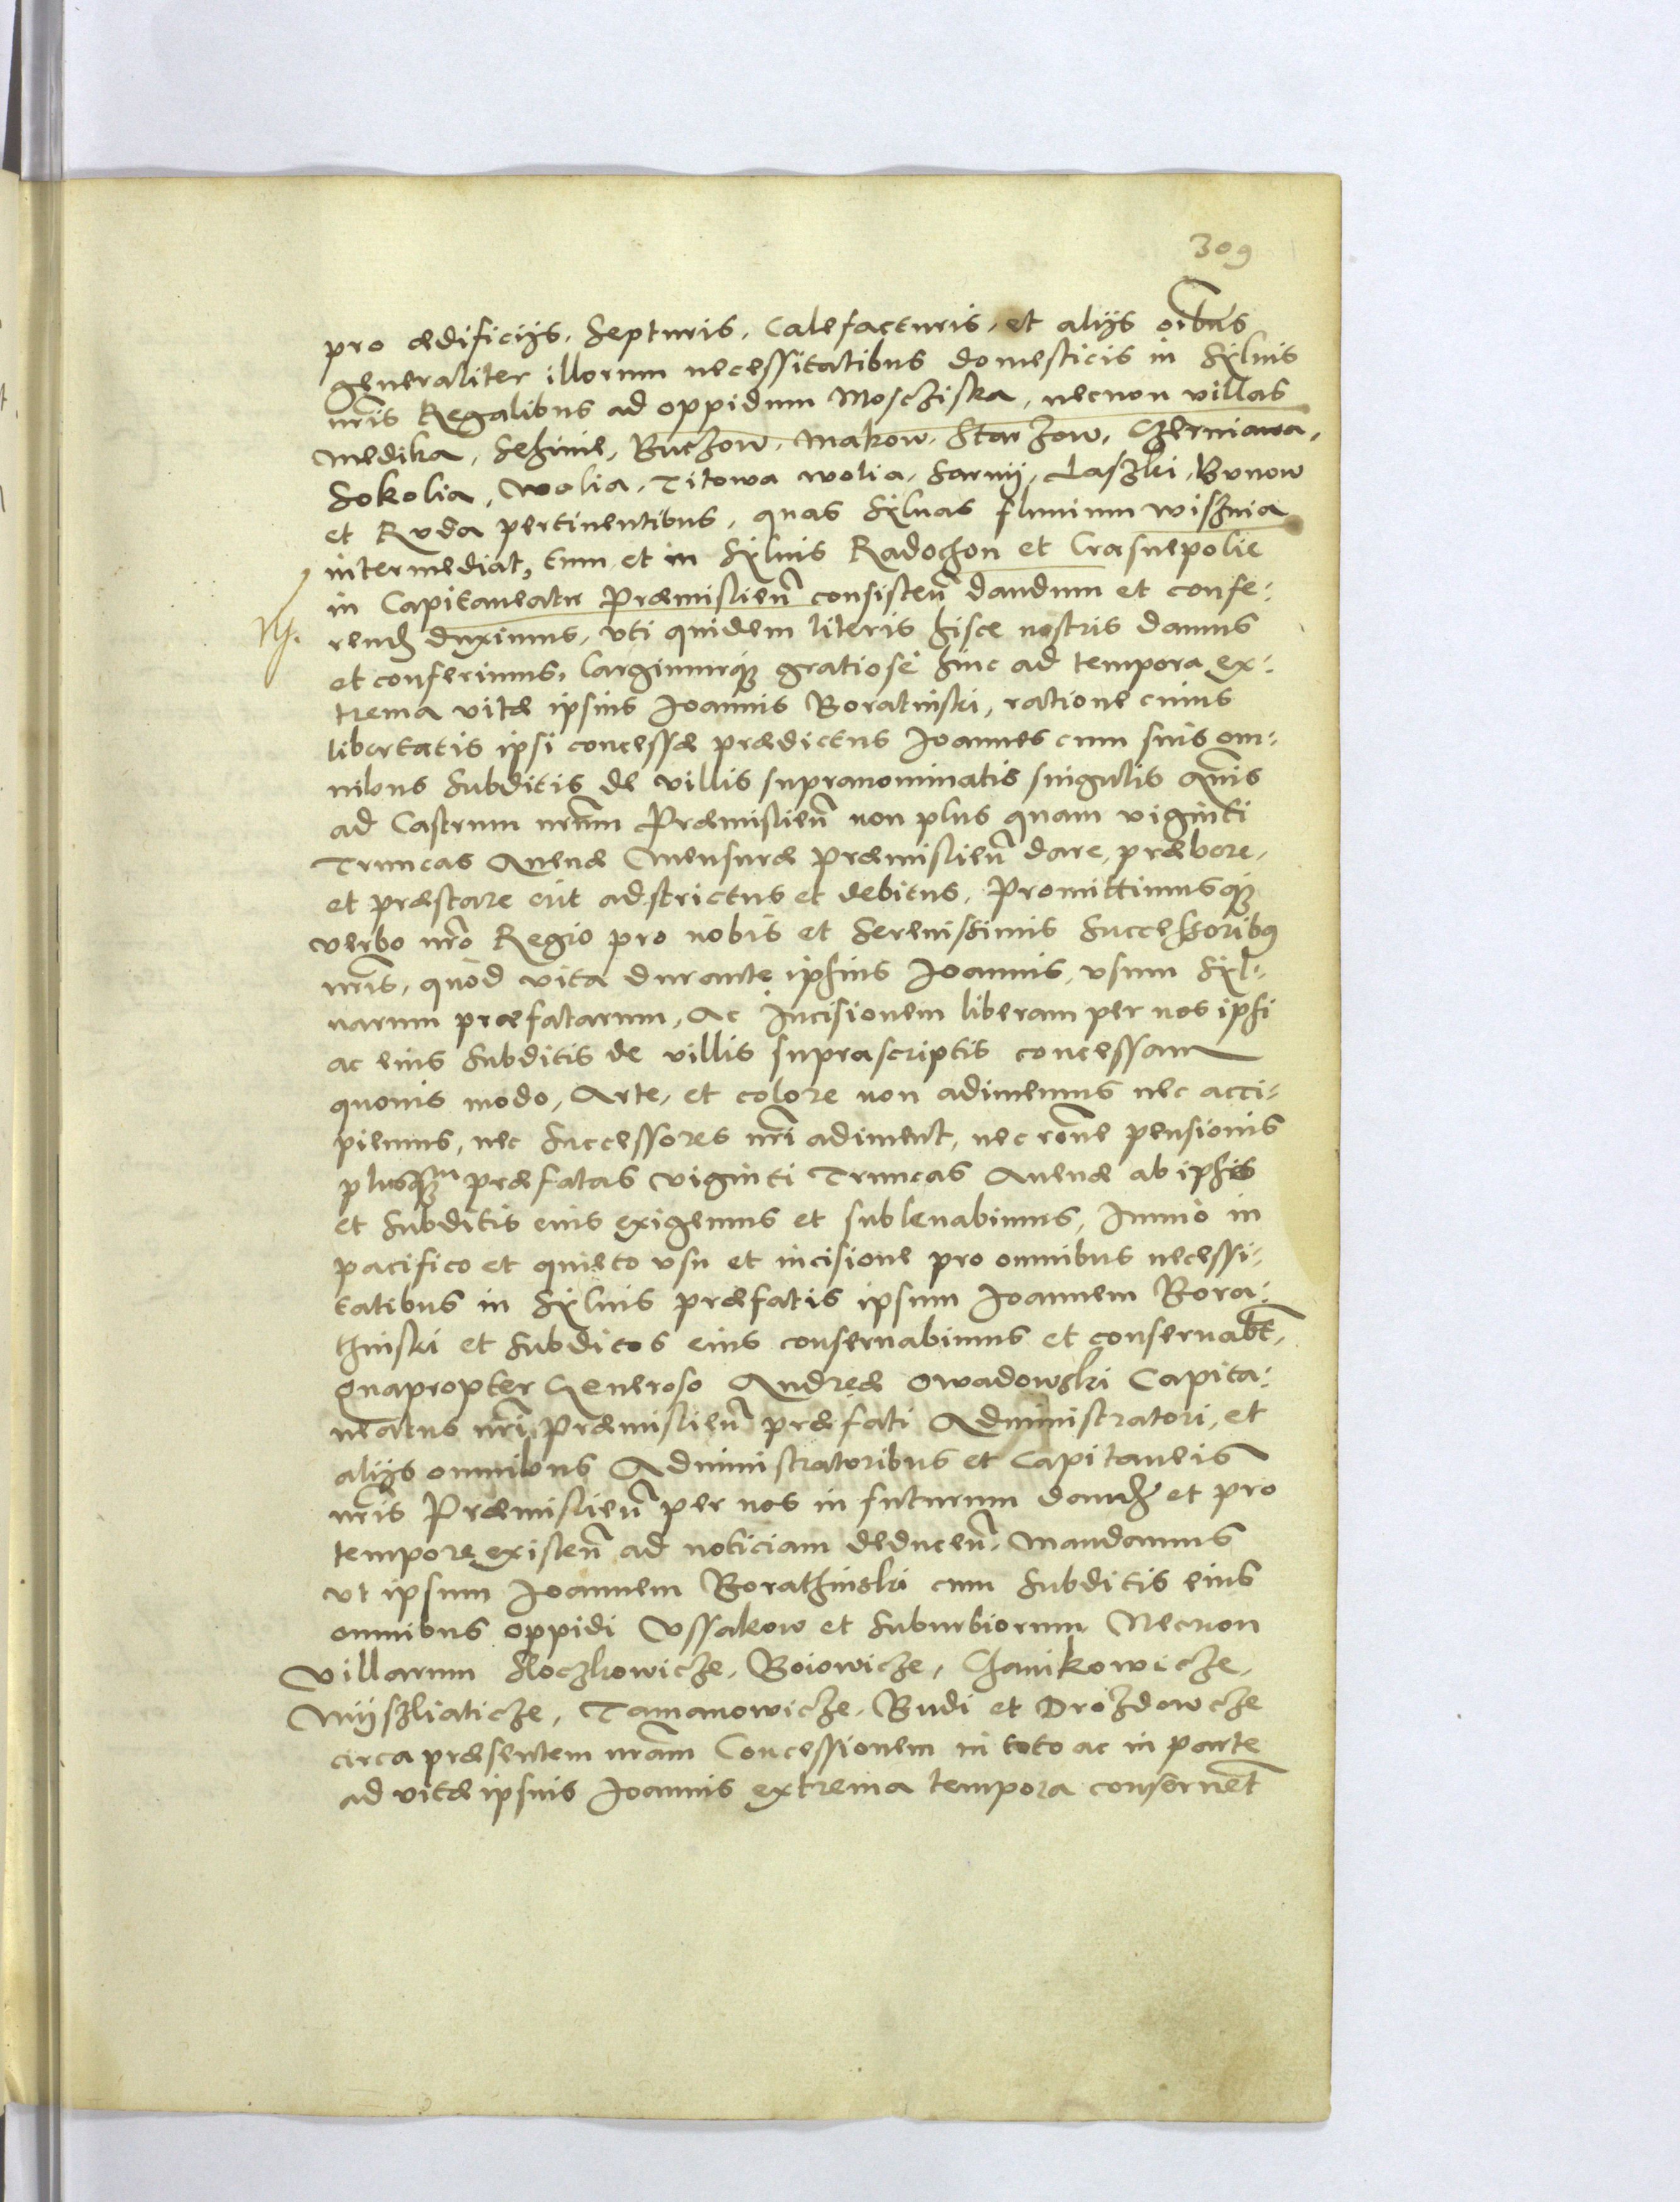 309
pro ædificijs, Septuris, Calefacturis, et alijs oībus
generaliter illorum necessitatibus domesticis in Sÿluis
nr̄is Regalibus ad oppidum Mosczÿska, necnon villas
Medika, Sehinie, Buczow, Makow, Starzow, Czerniawa,
Sokolia, Wolia, Titowa wolia, Sarnij, Laszki, Bunow
et Ruda pertinentibus, quas Sÿluas fluuium Wisznia
intermediat, tum et in Sÿluis Radochon et Crasnepolie
in Capitaneatu Præmislien̄ consisten̄ dandum et confe:
rend duximus, vti quidem literis hisce nostris damus
et conferimus, largimurq́ gratiosè hinc ad tempora ex:
trema vitæ ipsius Joannis Boratinski, ratione cuius
libertatis ipsi concessæ prædictus Joannes cum suis om:
nibus Subditis de villis supranominatis singulis an̄is
ad Castrum nr̄um Præmislien̄ non plus quam viginti
Truncas Auenæ Mensuræ Præmislien̄ dare, præbere,
et præstare erit adstrictus et debitus, Promittimusq́
verbo nr̄o Regio pro nobis et Serenissimis Successoribq
nr̄is, quòd vita durante ipsius Joannis, vsum Sÿl:
uarum præfatarum, Ac Incisionem liberam per nos ipsi
ac eius Subditis de villis suprascriptis concessam
quouis modo, Arte, et colore non adimemus nec acci:
piemus, nec Successores nr̄i adiment, nec rōne pensionis
plusq́m præfatas viginti Truncas Auenæ ab ipsis
et Subditis eius exigemus et subleuabimus, Immò in
pacifico et quieto vsu et incisione pro omnibus necessi:
tatibus in Sÿluis præfatis ipsum Joannem Bora:
thinski et Subditos eius conseruabimus et conseruabt̄,
Quapropter Generoso Andreæ Owadowski Capita:
neatus nr̄i Præmislien̄ præfati Administratori, et
alijs omnibus Administratoribus et Capitaneis
nr̄is Præmislien̄ per nos in futurum dand et pro
tempore existen̄ ad noticiam deducen̄, Mandamus
vt ipsum Joannem Borathinski cum Subditis eius
omnibus oppidi Vssakow et Suburbiorum Necnon
Villarum Roczkowicze, Boiowicze, Chanikowicze,
Mÿszliaticze, Tamanowicze, Budi et Drozdowcze
circa præsentem nr̄am Concessionem in toto ac in parte
ad vitæ ipsius Joannis extrema tempora conseruet̄